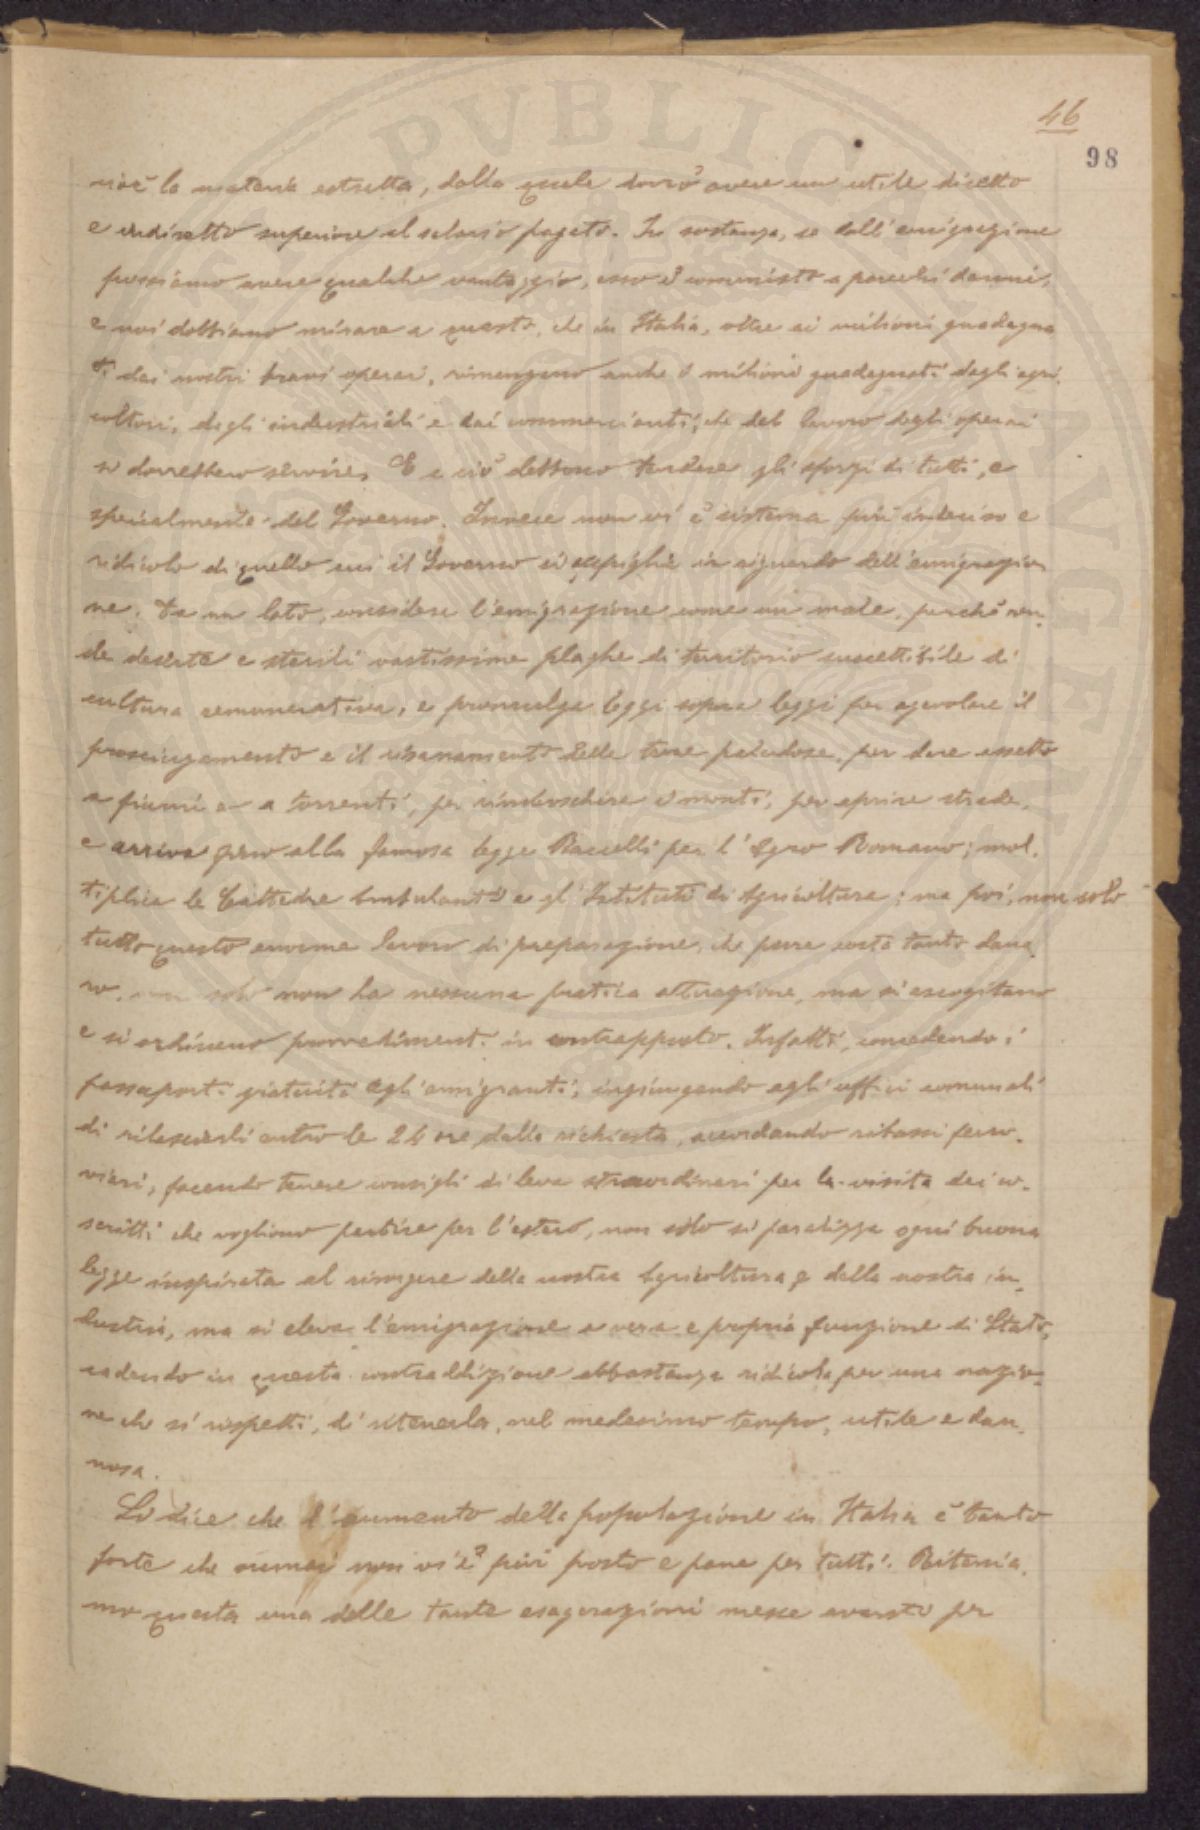 46
98
cioè la materia estratta, dalla quale dovrò avere un utile diretto
e indiretto superiore al salario pagato. In sostanza, se dall'emigrazione
possiamo avere qualche vantaggio, esso è commisto a parecchi danni,
e noi dobbiamo mirare a questo, che in Italia, oltre ai milioni guadagna
ti dai nostri bravi operai, rimangano anche i milioni guadagnati dagli agri.
coltori, dagli industriali e dai commercianti, che del lavoro degli operai
si dovrebbero servire. E a ciò debbono tendere gli sforzi di tutti, e
specialmente del Governo. Invece non vi è sistema più indeciso e
ridicolo di quello cui il Governo si appiglia in riguardo dell'emigrazio
ne. Da un lato, considera l'emigrazione come un male, perchè ren.
de deserte e sterili vastissime plaghe di territorio suscettibile di
cultura remunerativa, e promulga leggi sopra leggi per agevolare il
prosciugamento e il risanamento delle terre paludose, per dare assetto
a fiumi e a torrenti, per rimboschire i monti, per aprire strade,
e arriva fino alla famosa legge Baccelli per l'Agro Romano; mol.
tiplica le Cattedre Ambulanti e gl'Istituti di Agricoltura; ma poi, non solo
tutto questo enorme lavoro di preparazione, che pure costa tanto dana
ro, non solo non ha nessuna pratica attuazione, ma si escogitano
e si ordinano provvedimenti in contrapposto. Infatti, concedendo i
passaporti gratuiti agli emigranti, ingiungendo agli uffici comunali
di rilasciarli entro le 24 ore dalla richiesta, accordando ribassi ferro.
viari, facendo tenere consigli di leva straordinari per la visita dei co.
scritti che vogliono partire per l'estero, non solo si paralizza ogni buona
legge inspirata al risorgere della nostra Agricoltura e della nostra in.
dustria, ma si eleva l'emigrazione a vera e propria funzione di Stato,
cadendo in questa contraddizione abbastanza ridicola per una nazio.
ne che si rispetti, di ritenerla, nel medesimo tempo, utile e dan.
nosa.
Si dice che l'aumento della popolazione in Italia è tanto
forte che oramai non vi è più posto e pane per tutti. Riteniа.
mo questa una delle tante esagerazioni messe avanti per